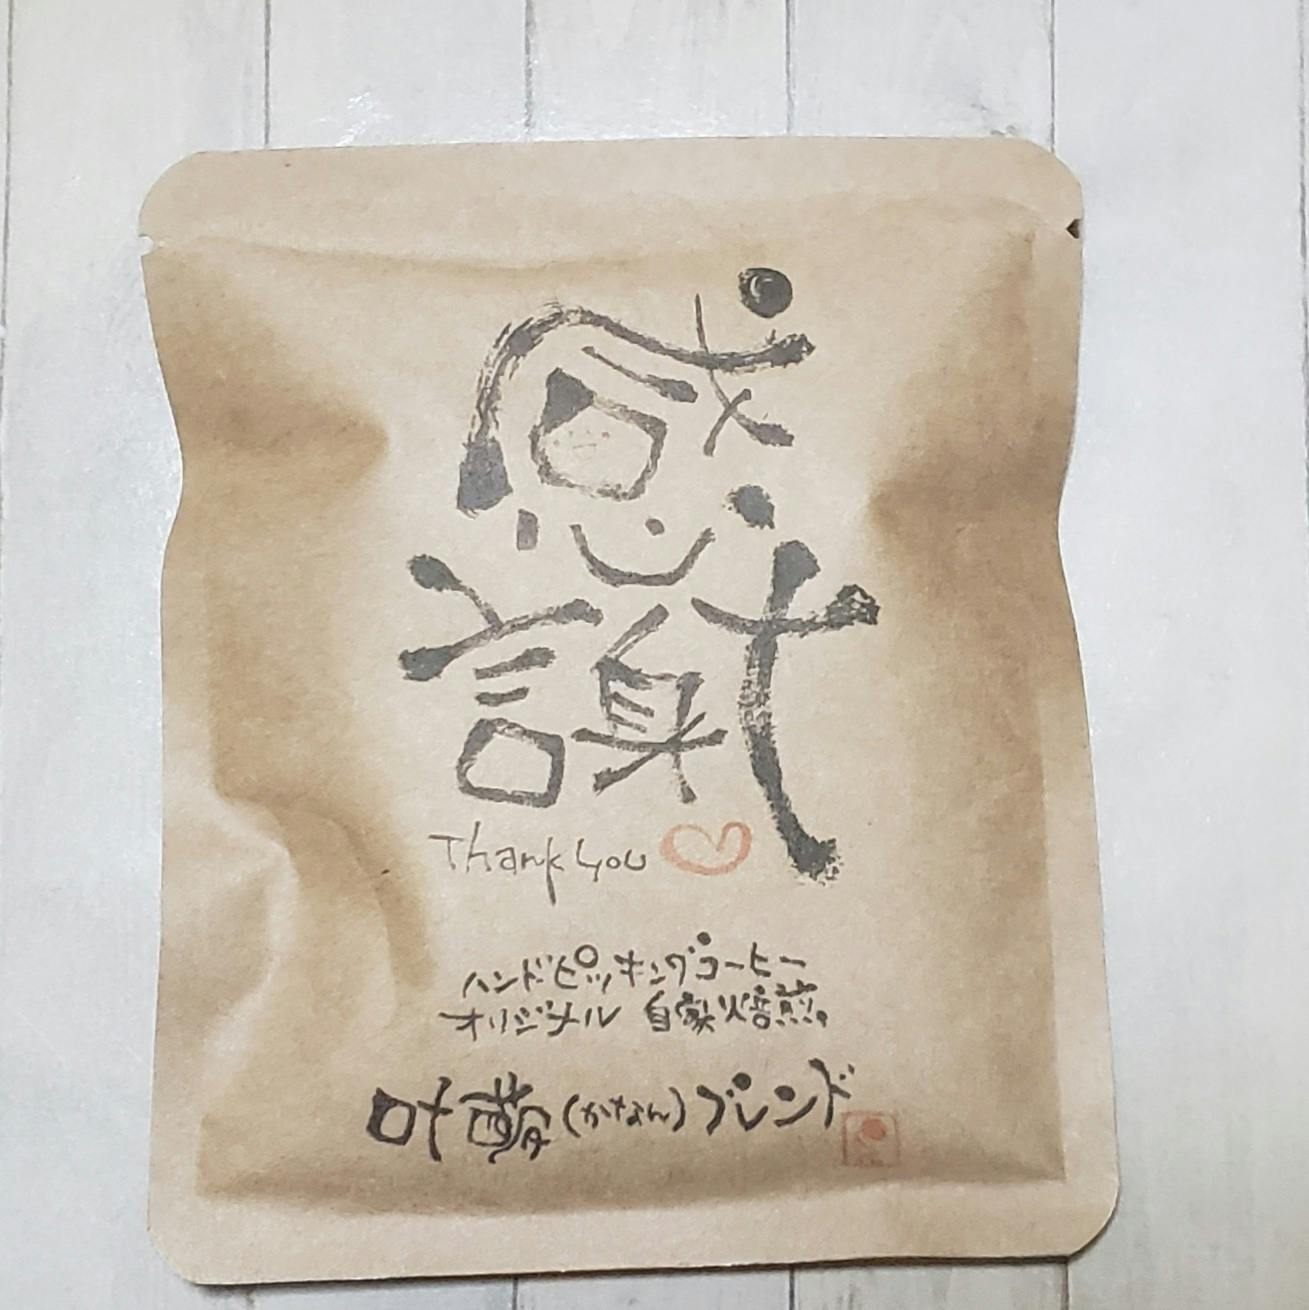 感
謝
Thank you
ハンドピッキングコーヒー
オリジナル 自家焙煎。
叶夢(かなん)ブレンド